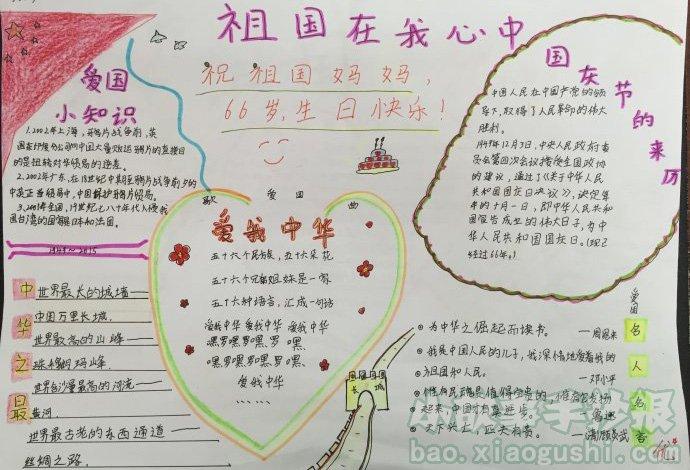 祖国在我心中
祝祖国妈妈，
66岁，生日快乐！
爱国
小知识
1.2002年上海，鸦片战争前，英
国东印度公司向中国大量贩运鸦片的直接目
的是扭转对华贸易的逆差。
2.2002年广东，在19世纪中期至鸦片战争前夕的
3.2001年全国，19世纪七八十年代入侵我
国台湾的国家日本和法国。
1949~2015
中华之最
世界最长的城墙——
中国万里长城.
世界最高的山峰——
珠穆朗玛峰
世界含沙量最高的河流——
黄河.
世界最古老的东西通道——
丝绸之路.
爱国歌曲
爱我中华
五十六个民族，五十六朵花
五十六个兄弟姐妹是一家
五十六种语言，汇成一句话
爱我中华 爱我中华 爱我中华
嘿罗嘿罗嘿罗、嘿
嘿罗嘿罗嘿罗、嘿罗
爱我中华
……
长城
国庆节的来历
中国人民在中国共产党的领
导下，取得了人民革命的伟大
胜利.
1949年12月3日，中央人民政府委
员会第四次会议接受全国政协
的建议，通过了《关于中华人民
共和国国庆日决议》，决定每
年的十月一日，即中华人民共和
国宣告成立的伟大日子，为中
华人民共和国国庆日。(现已
经过66年。)
爱国名人名言
为中华之崛起而读书。
——周恩来
我是中国人民的儿子，我深情地爱着我的
祖国和人民。
——邓小平
惟有民魂是值得宝贵的，惟有他发扬
起来，中国才有真进步。
——鲁迅
天下兴亡，匹夫有责。
——清/顾炎武
优
小故事手抄报
bao.xiaogushi.com